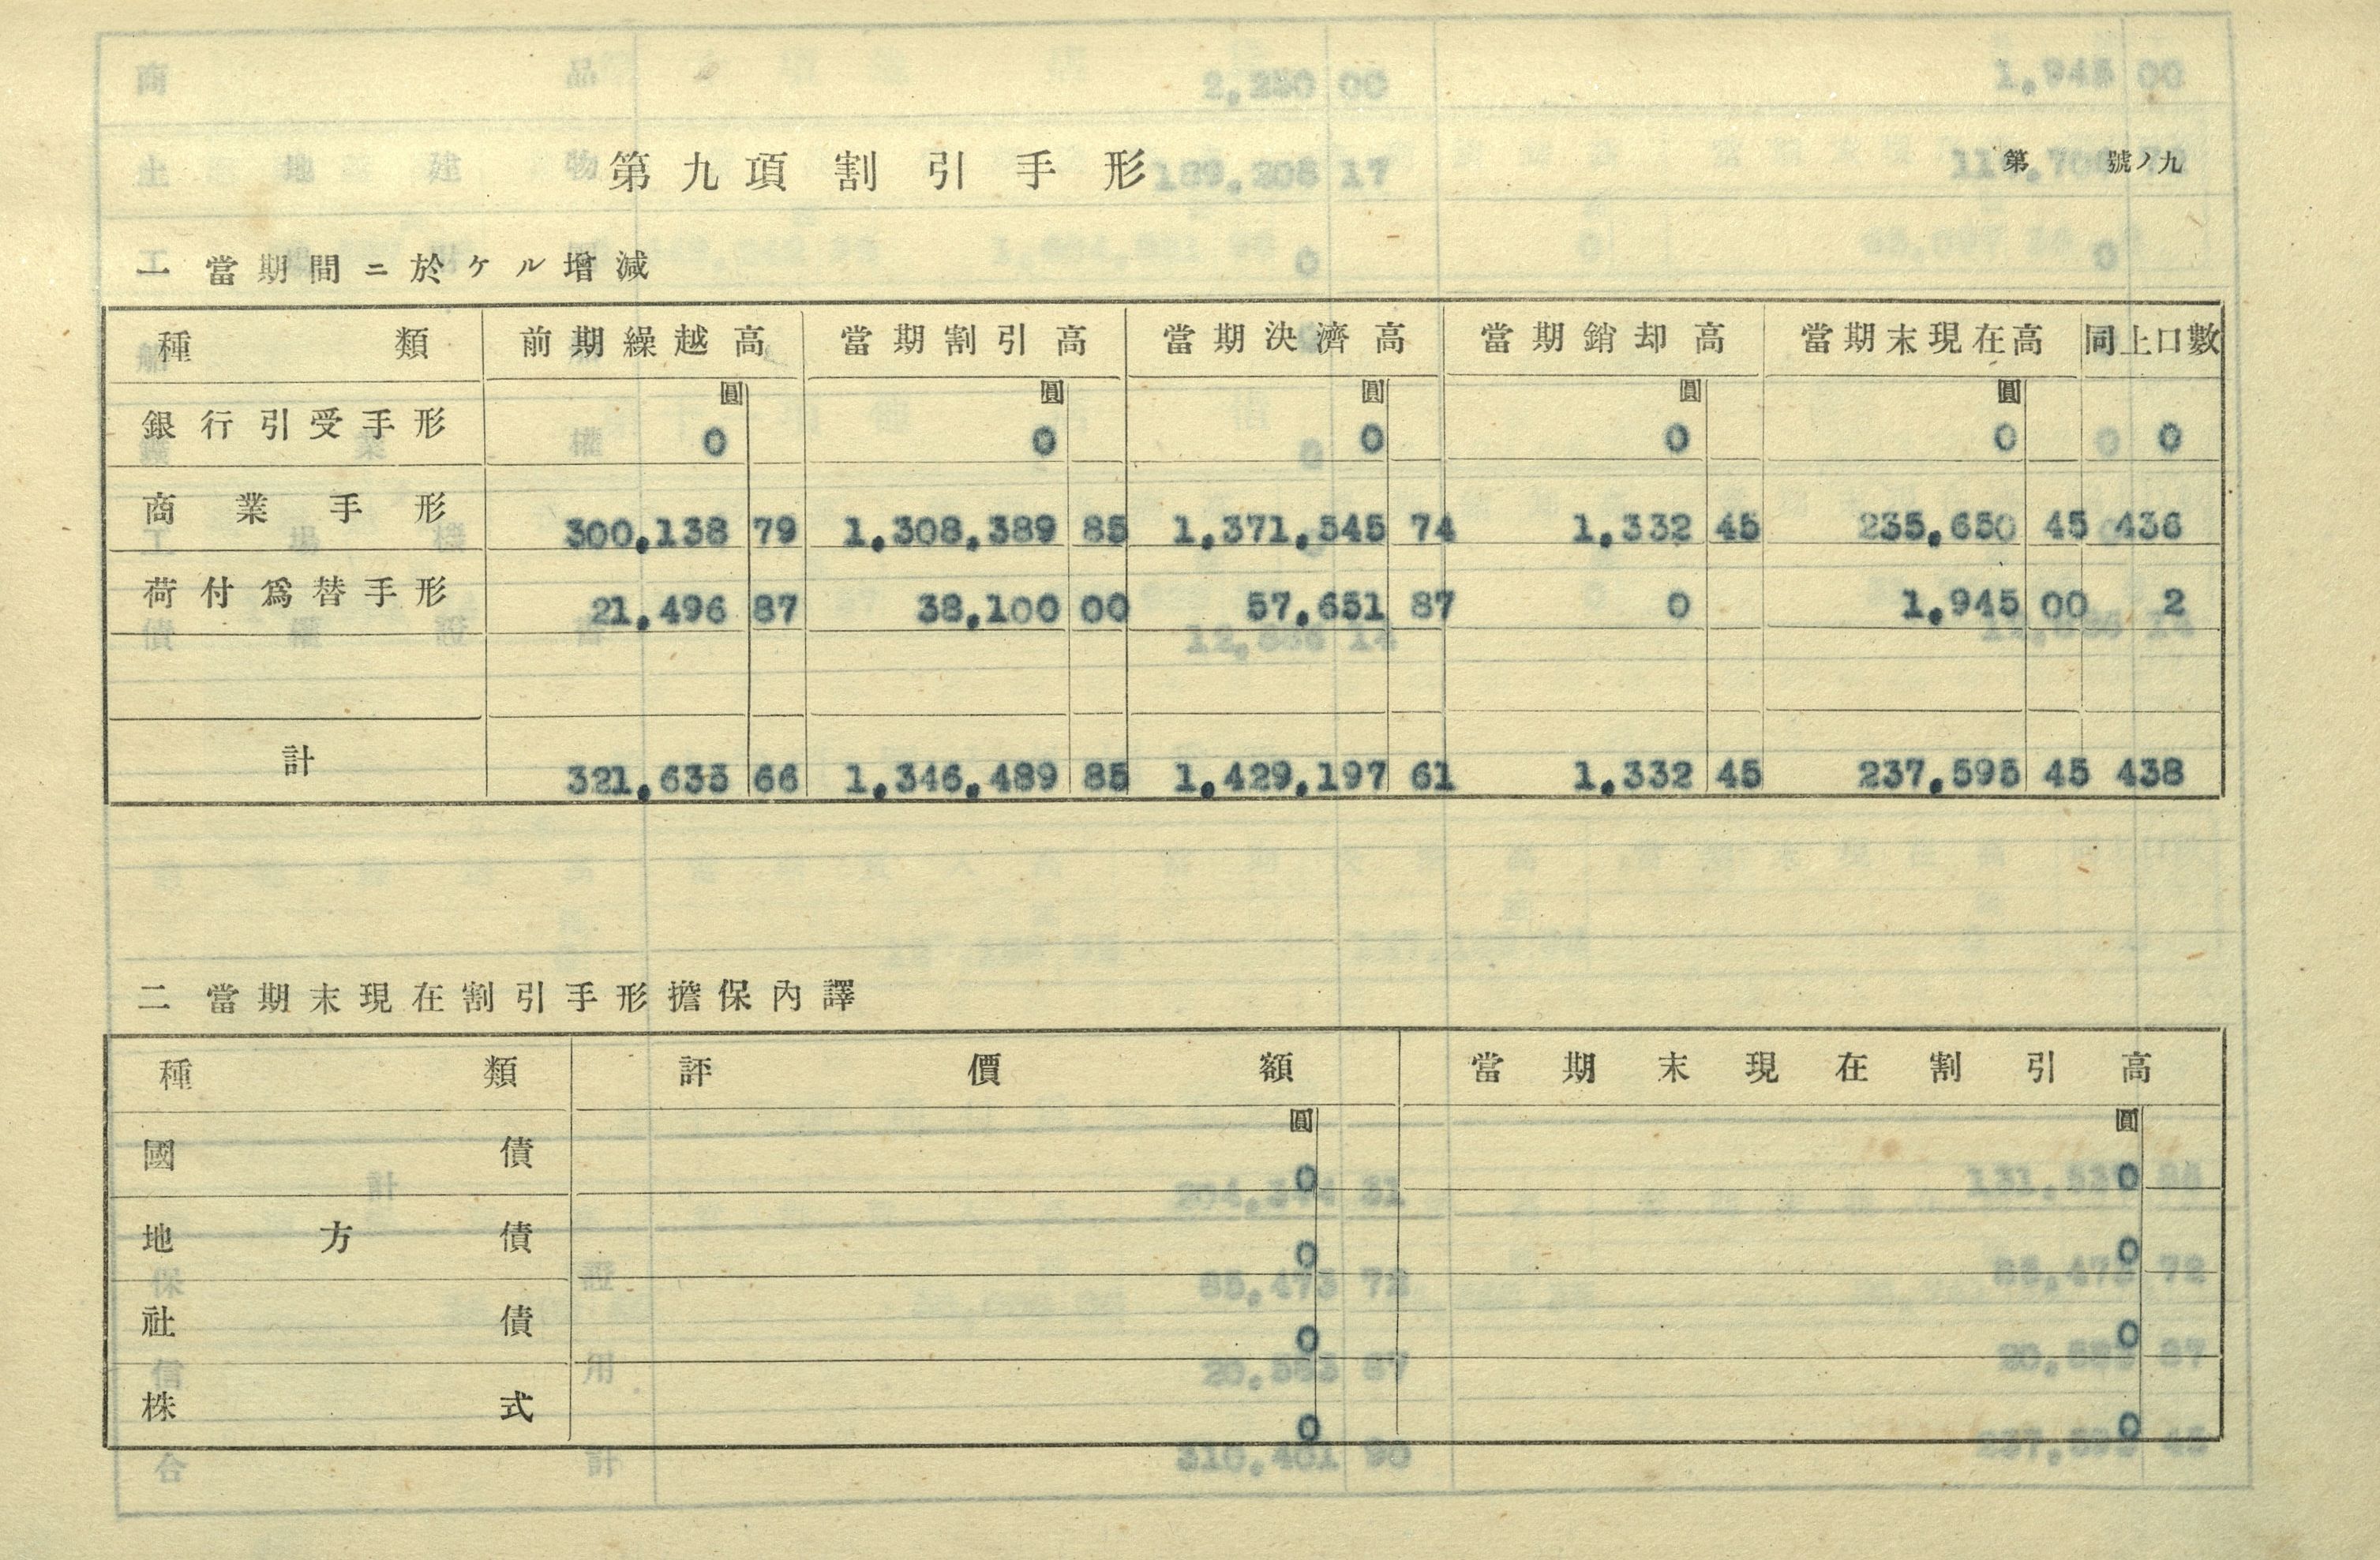 第九項割引手形
第　號ノ九
一 當期間ニ於ケル增減
種類 前期繰越高 當期割引高 當期決濟高 當期銷却高 當期末現在高 同上口數
圓 圓 圓 圓 圓
銀行引受手形 0 0 0 0 0 0
商業手形 300,138 79 1,308,389 85 1,371,545 74 1,332 45 235,650 45 436
荷付爲替手形 21,496 87 38,100 00 57,651 87 0 1,945 00 2
計 321,635 66 1,346,489 85 1,429,197 61 1,332 45 237,595 45 438
二 當期末現在割引手形擔保內譯
種類 評價額 當期末現在割引高
圓 圓
國債 0 0
地方債 0 0
社債 0 0
株式 0 0